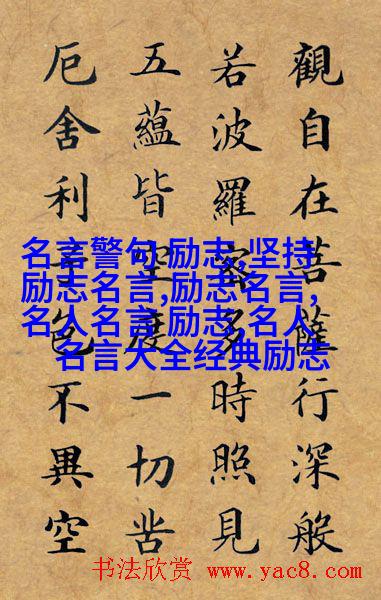 觀自在菩薩行深般
若波羅蜜多時照見
五蘊皆空度一切苦
厄舍利子色不異空
名言警句,励志,坚持
励志名言,励志名言,
名人名言,励志,名人
名言大全经典励志
书法欣赏 www.yac8.com